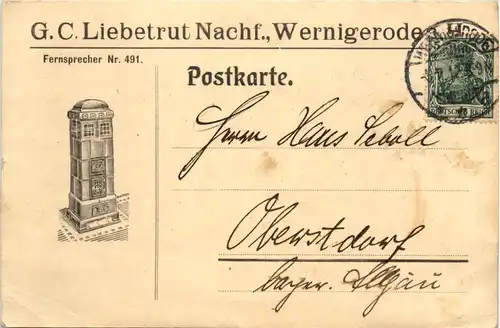 G. C. Liebetrut Nachf., Wernigerode
Fernsprecher Nr. 491.
Postkarte.
Herrn Hans
Oberstdorf
bayer. Allgäu
DEUTSCHES REICH